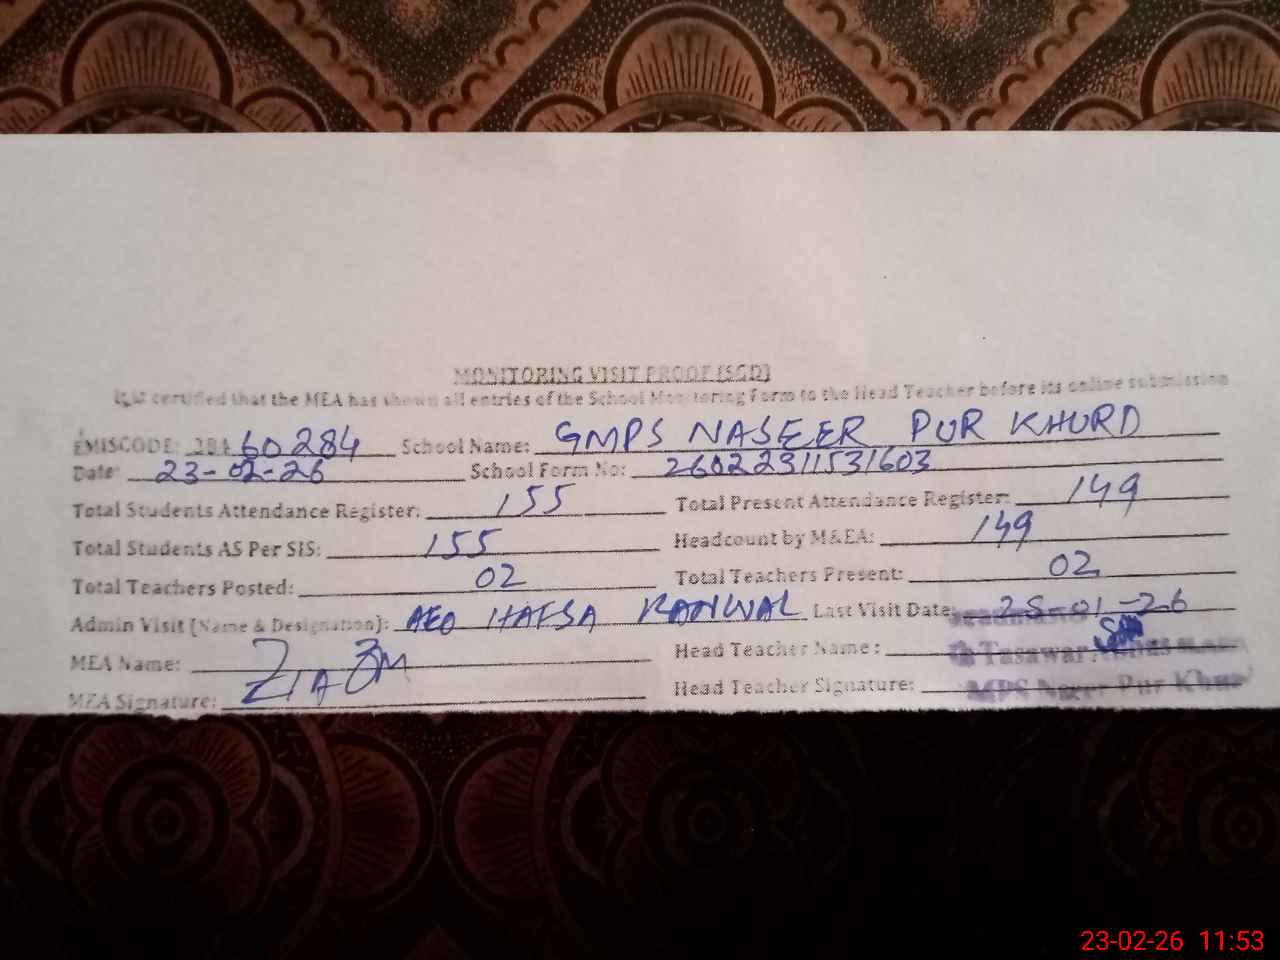 MONITORING VISIT PROOF (SGD)
It is certified that the MEA has shown all entries of the School Monitoring Form to the Head Teacher before its online submission
EMISCODE: 384 60284 School Name: GMPS NASEER PUR KHURD
Date: 23-02-26 School Form No: 26022311531603
Total Students Attendance Register: 155 Total Present Attendance Register: 149
Total Students AS Per SIS: 155 Headcount by M&EA: 149
Total Teachers Posted: 02 Total Teachers Present: 02
Admin Visit [Name & Designation]: AEO HAFSA KANWAL Last Visit Date: 28-01-26
MEA Name: Head Teacher Name: Tasawar Abbas
MEA Signature: Head Teacher Signature: MPS Naseer Pur Khurd
23-02-26 11:53